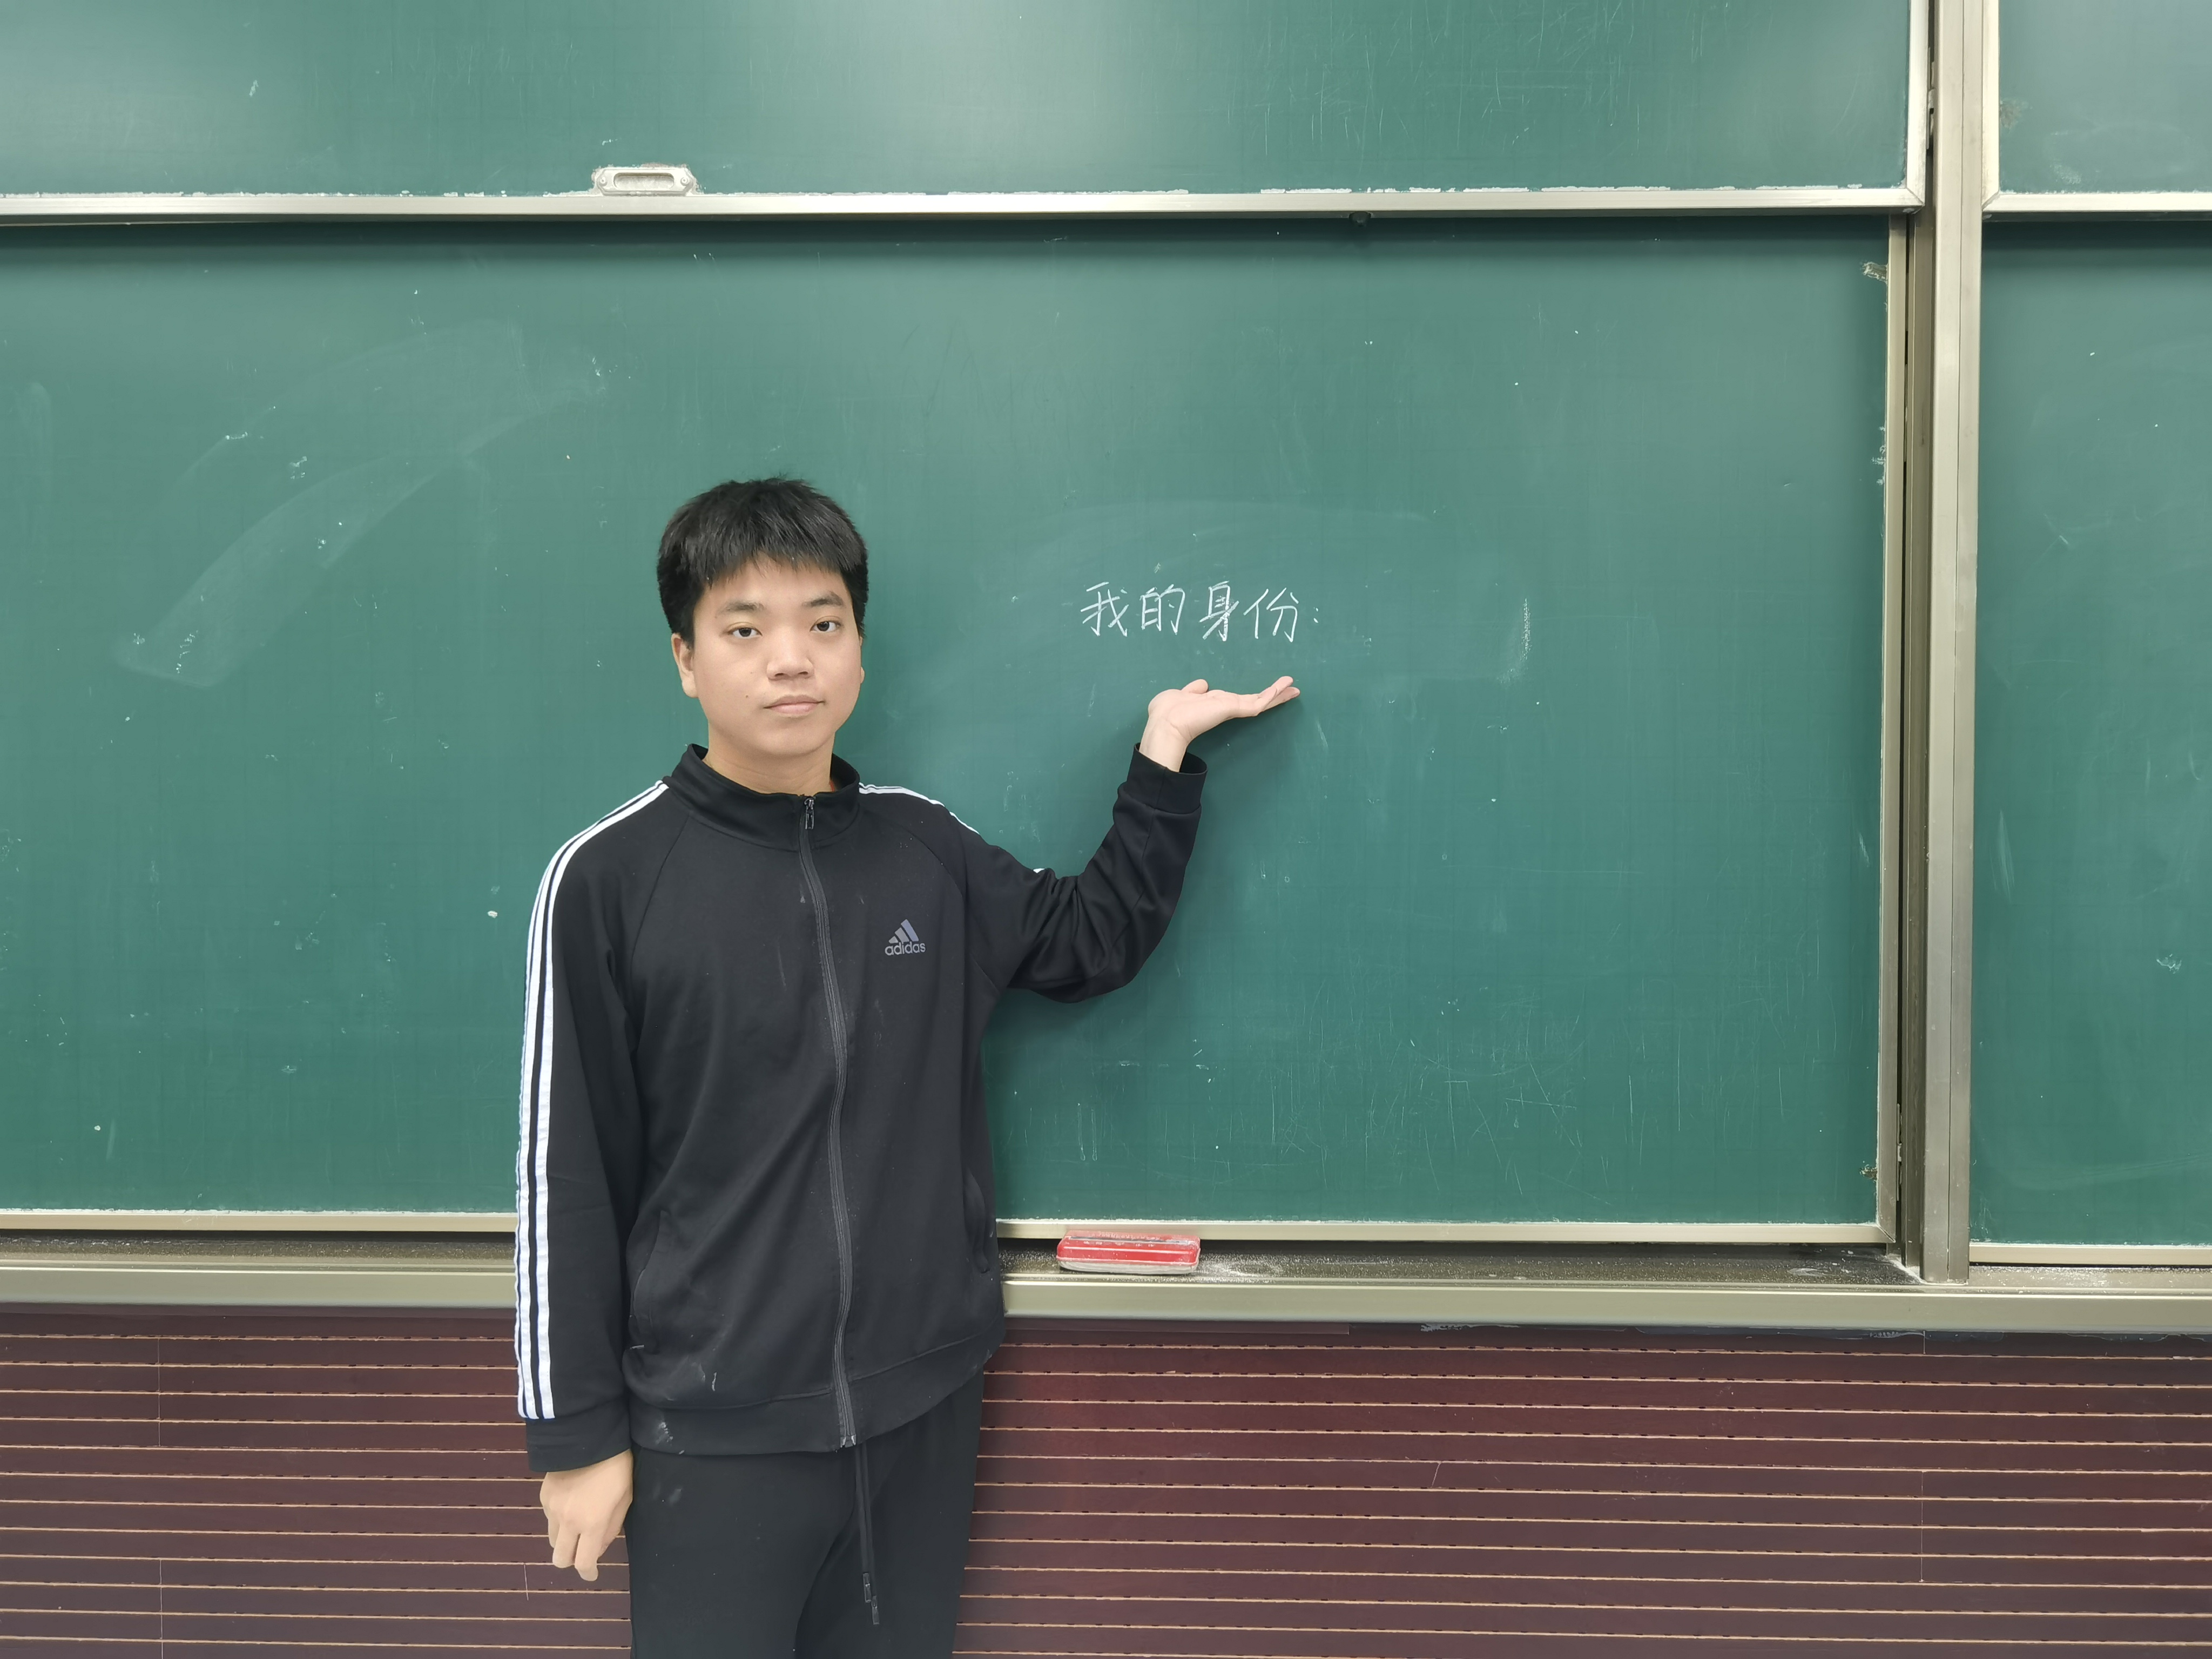 我的身份:
adidas